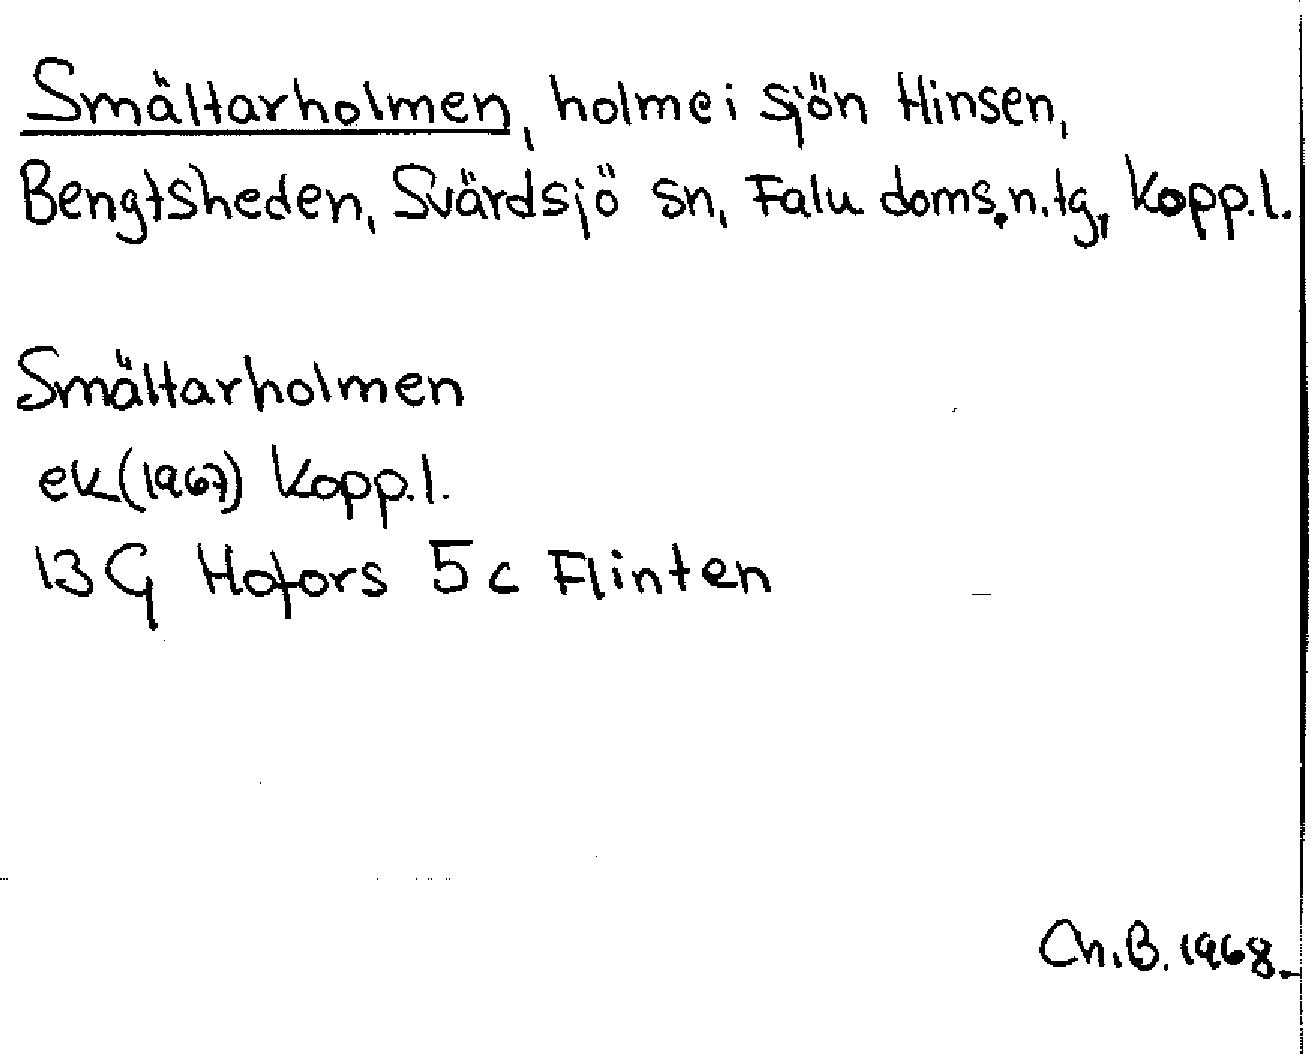 Smältarholmen, holme i sjön Hinsen,
Bengtsheden, Svärdsjö sn, Falu doms.n.tg, Kopp.l.
Smältarholmen
ek (1967) Kopp.l.
13 G Hofors 5 c Flinten
Ch.B. 1968.